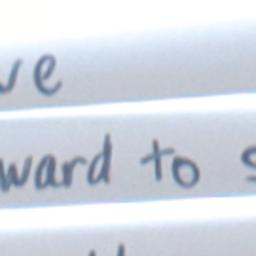 ve
ward to s